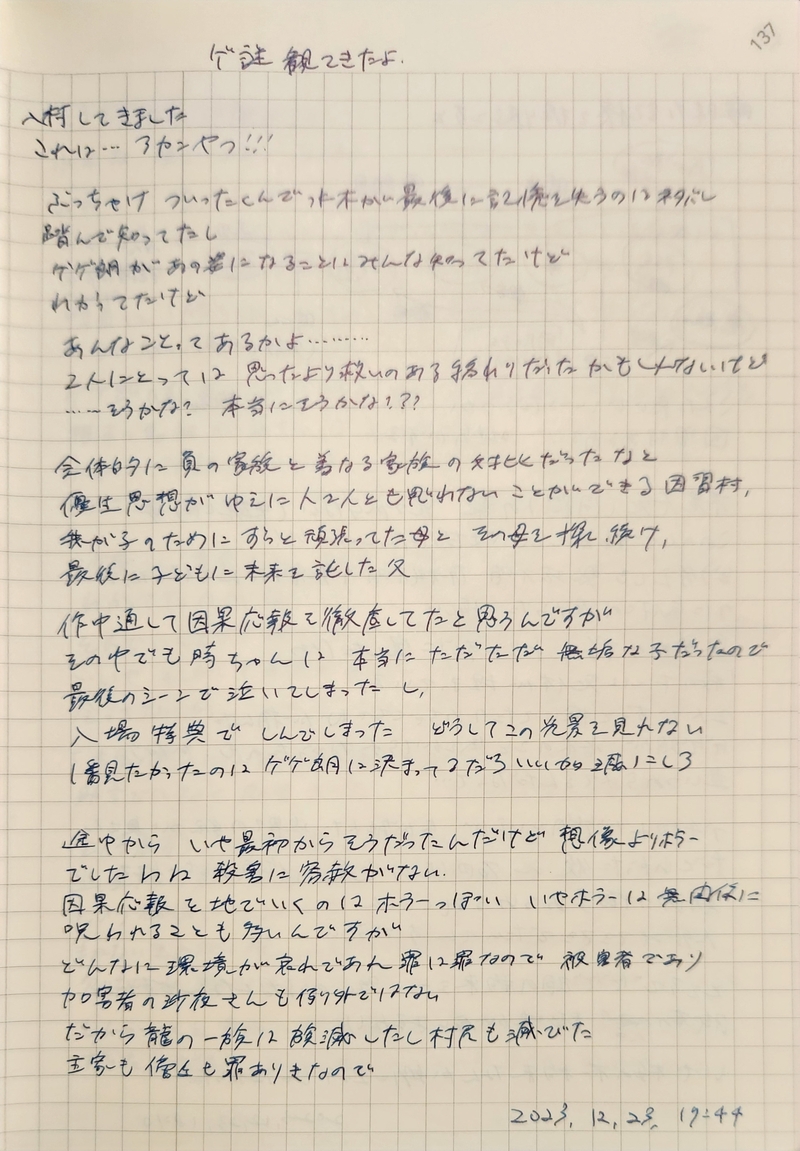 137
ゲ謎 観てきたよ.
入村してきました
これは… アカンやつ!!!
ぶっちゃけ ついったくんで水木が最後に記憶を失うのはネタバレ
踏んで知ってたし
ゲゲ郎があの姿になることはみんな知ってたけど
わかってたけど
あんなことってあるかよ………
2人にとっては 思ったより救いのある終わりだったかもしんないけど
……そうかな? 本当にそうかな???
全体的に負の家族と善なる家族の対比だったなと
優生思想がゆえに人を人とも思わないことができる因習村,
我が子のためにずっと頑張ってた母と その母を探し続け,
最後に子どもに未来を託した父
作中通して因果応報を徹底してたと思うんですが
その中でも時ちゃんは 本当にただただ 無垢な子だったので
最後のシーンで泣いてしまったし,
入場特典で しんでしまった どうしてこの光景を見れない
1番見たかったのは ゲゲ郎に決まってるだろ いい加減にしろ
途中から いや最初からそうだったんだけど 想像よりホラー
でしたわね 殺害に容赦がない.
因果応報を地でいくのはホラーっぽい いやホラーは無関係に
呪われることも多いんですが
どんなに環境が哀れであれ 罪は罪なので 被害者であり
加害者の沙夜さんも例外ではない
だから龍の一族は族滅したし村民も滅びた
主家も 僧丘も罪ありきなので
2023. 12. 23. 19:44